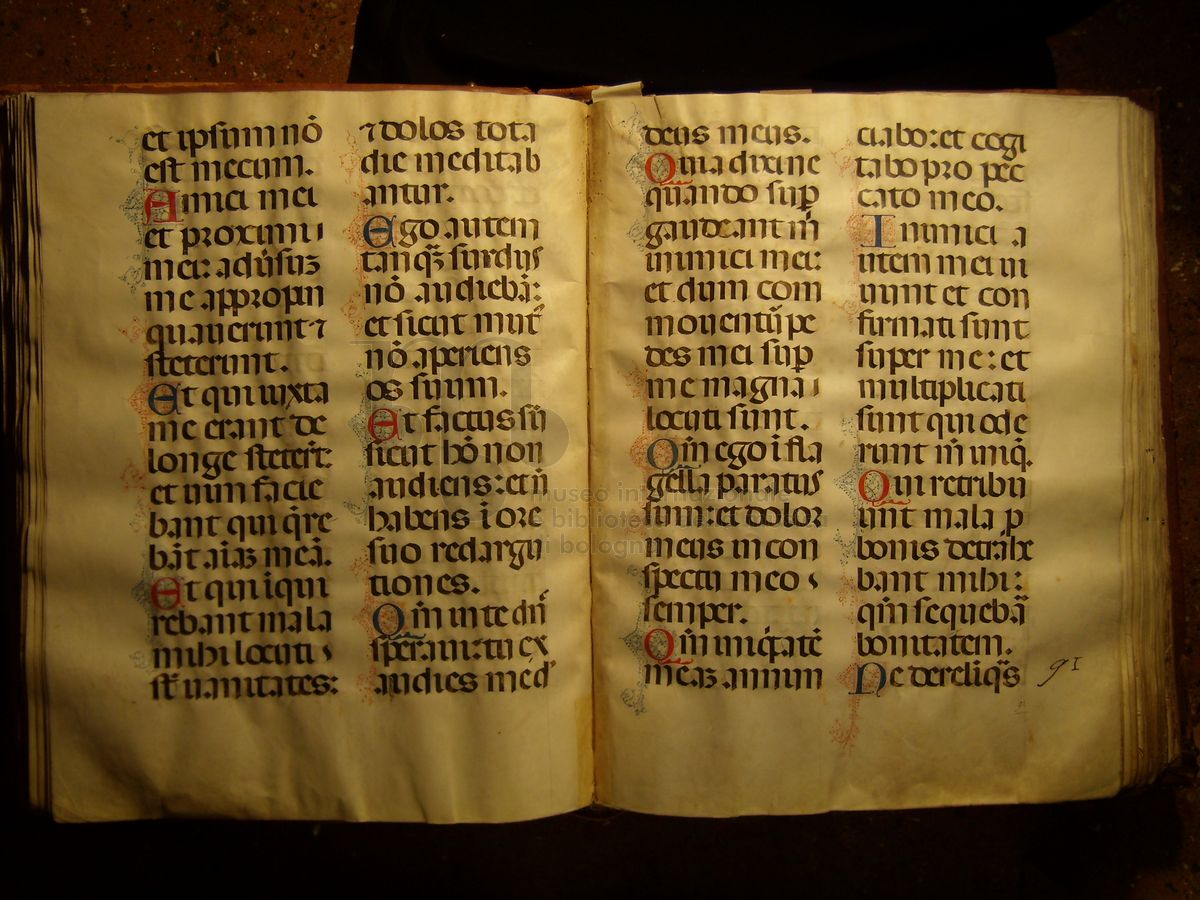 et ipsum nō
est mecum.
Amici mei
et proximi
mei: adūsuꝫ
me appropin
quauerunt ⁊
steterunt.
Et qui iuxta
me erant de
longe steterūt:
et uim facie
bant qui q̄re
bāt aīaꝫ meā.
Et qui iqui
rebant mala
mihi locuti
st̄ uanitates:
⁊ dolos tota
die meditab
antur.
Ego autem
tanqꝫ surdus
nō audiebā:
et sicut mut᷒
nō aperiens
os suum.
Et factus sū
sicut hō non
audiens: et n̄
habens ī ore
suo redargu
tiones.
Qm̄ in te dn̄e
speraui: tu ex
audies me d᷒
deus meus.
Quia dixi ne
quando suꝑ
gaudeant m̄
inimici mei:
et dum com
mouentū pe
des mei suꝑ
me magna
locuti sunt.
Qm̄ ego ī fla
gella paratus
sum: et dolor
meus in con
spectu meo
semper.
Qm̄ iniq̄tatē
meaꝫ annun
ciabo: et cogi
tabo pro pec
cato meo.
Inimici a
utem mei ui
uunt et con
firmati sunt
super me: et
multiplicati
sunt qui ode
runt m̄ iniq̄.
Qui retribu
unt mala ꝓ
bonis detrahe
bant mihi:
qm̄ sequebā
bonitatem.
Ne derelīqs
91
museo internazionale
biblioteca
di bologna